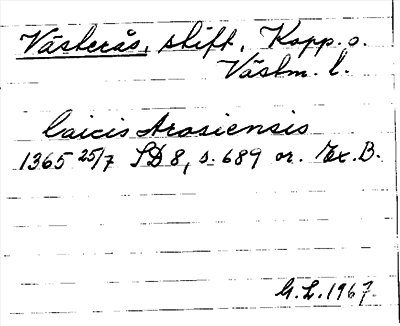 Västerås, stift, Kopp. o.
Västm. l.
laicis Arosiensis
1365 25/7 SD 8, s. 689 or. Ex. B.
G. L. 1967